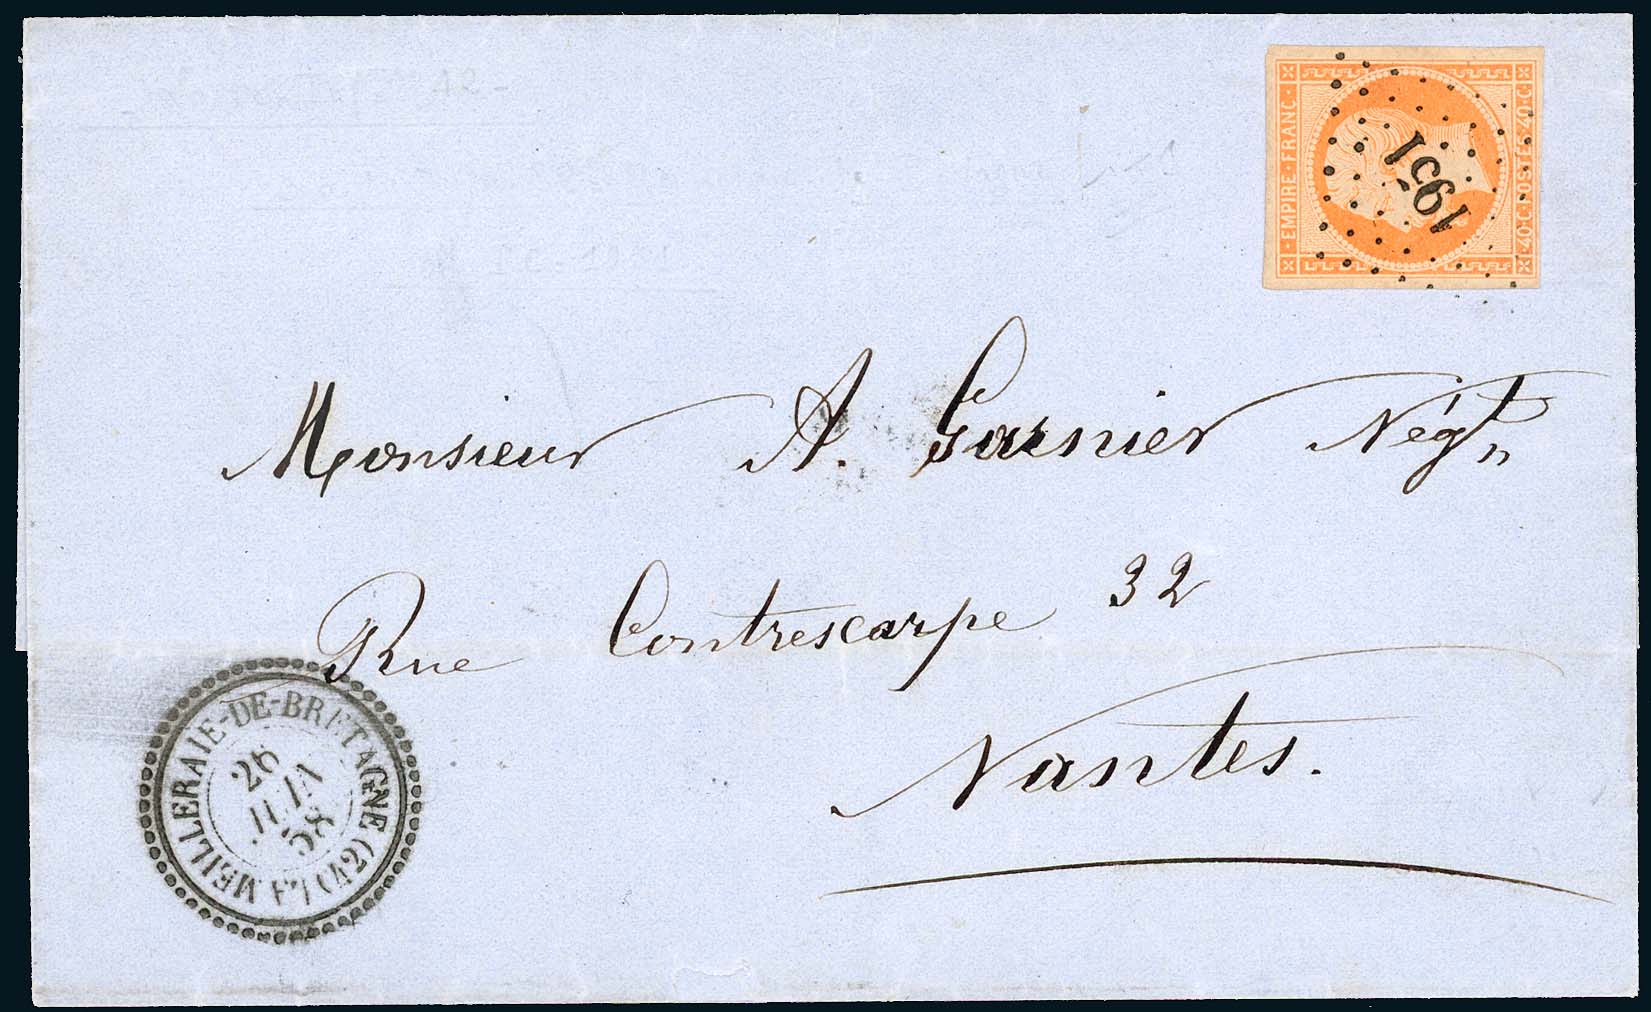 EMPIRE · FRANC ·
40 · C · POSTES · 40 · C
1951
Monsieur A. Garnier Négtn
Rue Contrescarpe 32
Nantes.
LA MEILLERAIE-DE-BRETAGNE (42)
26
JUIN
58